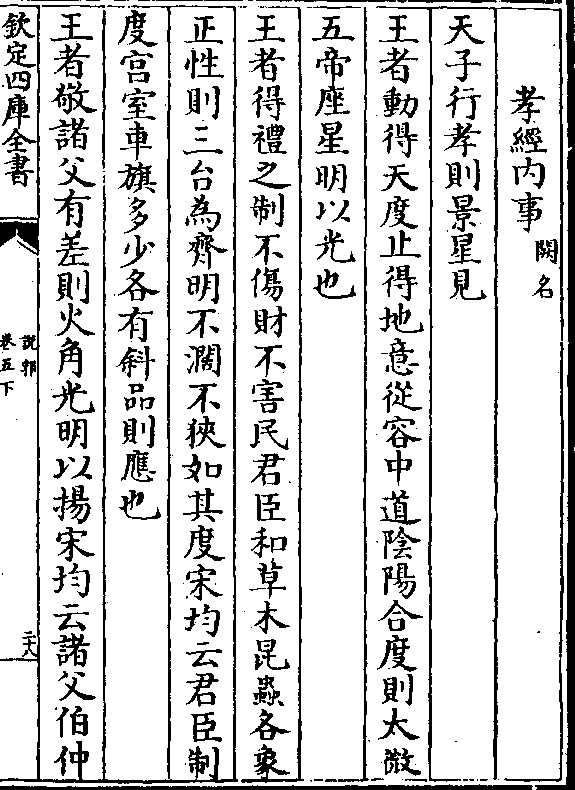 孝經内事 闕名
天子行孝則景星見
王者動得天度止得地意從容中道陰陽合度則太微
五帝座星明以光也
王者得禮之制不傷財不害民君臣和草木昆蟲各䝉
正性則三台為齊明不濶不狹如其度宋均云君臣制
度宫室車旗多少各有斜品則應也
王者敬諸父有差則火角光明以揚宋均云諸父伯仲
欽定四庫全書
說郛
卷五下
二十八